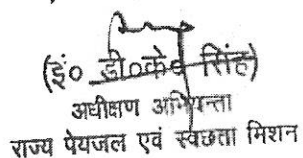 (इं० डी०के० सिंह)
अधीक्षण अभियन्ता
राज्य पेयजल एवं स्वच्छता मिशन